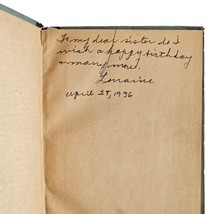 To my dear sister do I
wish a happy birthday
& many more.
Lorraine
April 25, 1936